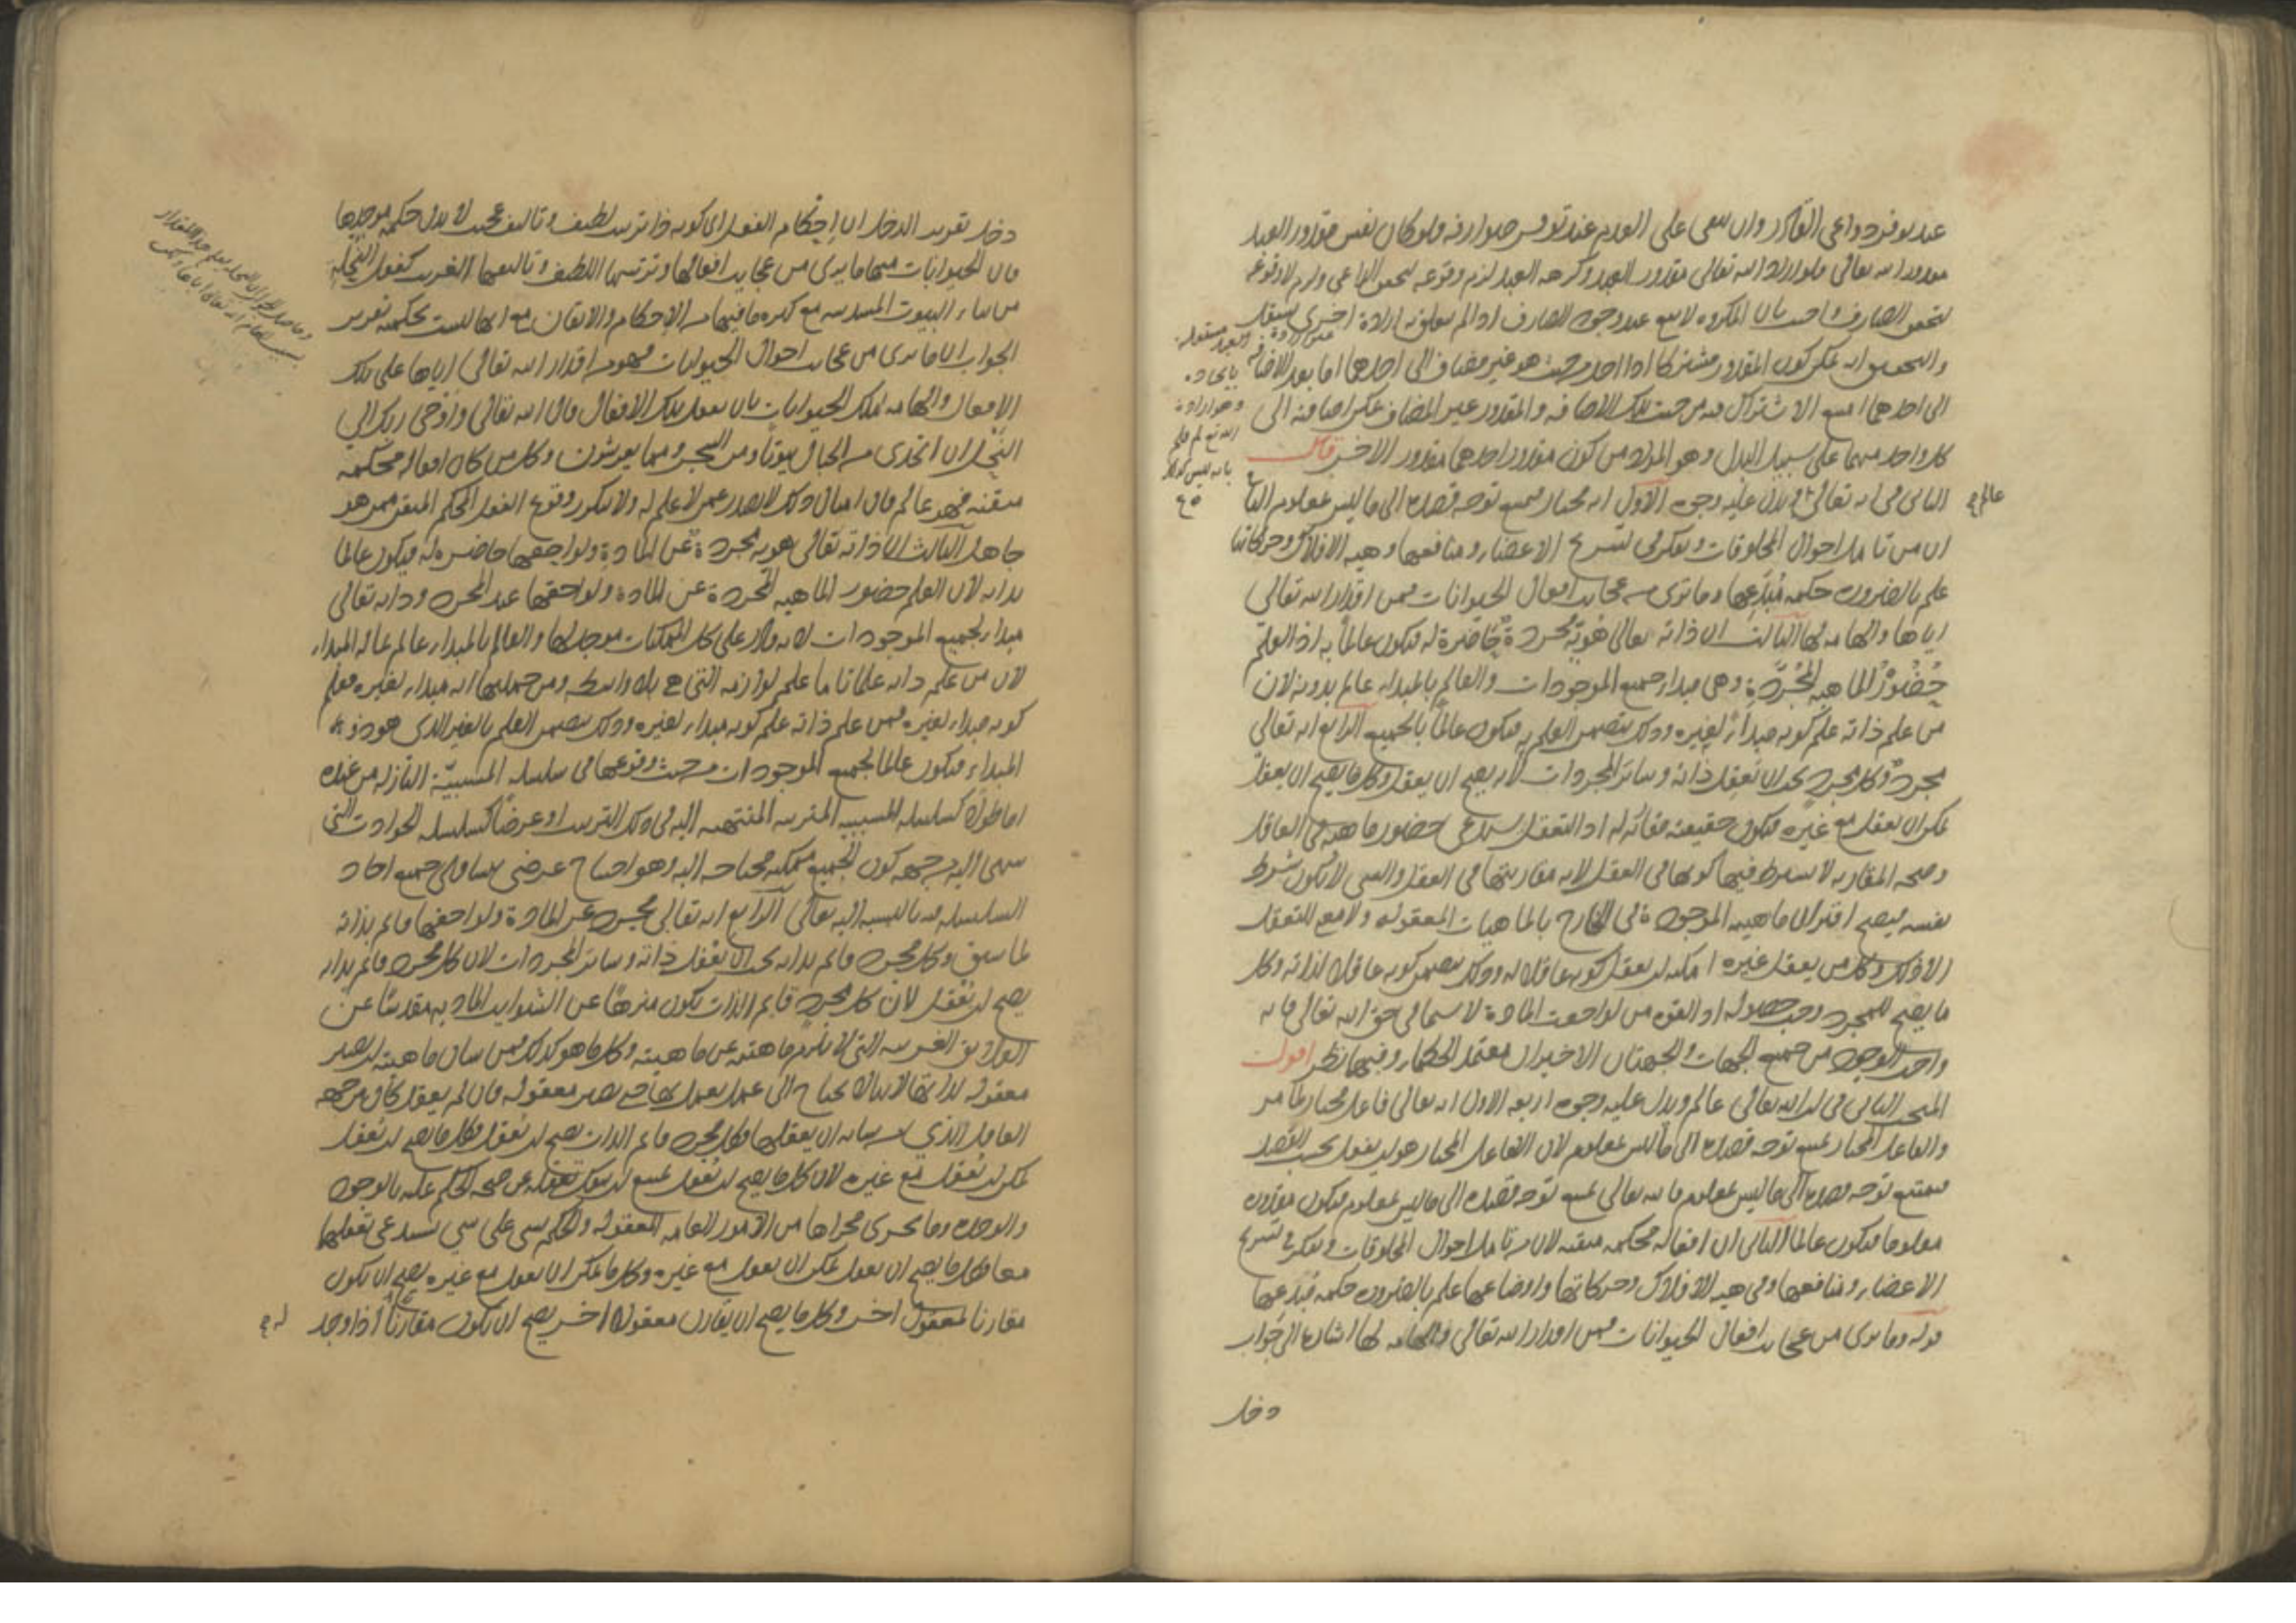 عند توفر دواعي القادر وان يبقى على العدم عند توفر صوارفه فلو كان نفس مقدور العبد
مقدورا لله تعالى فلو اراد الله تعالى مقدور العبد وكرهه العبد لزم وقوعه لتحقق الداعي ولزم لا وقوعه
لتحقق الصارف واجيب بان المكروه لا يقع عند وجود الصارف اذا لم يتعلق به ارادة اخرى مستقلة
والتحقيق انه يمكن كون المقدور مشتركا اذا اخذ من حيث هو غير مضاف الى احدهما اما بعد الاضافة
الى احدهما امتنع الاشتراك فيه من حيث تلك الاضافة والمقدور غير المضاف يمكن اضافته الى
كل واحد منهما على سبيل البدل وهو المراد من كون مقدور احدهما مقدور الاخر قال
الثاني في انه تعالى عالم ويدل عليه وجوه الاول انه مختار فيمتنع توجه قصده الى ما ليس بمعلوم الثاني
ان من تامل احوال المخلوقات وتفكر في تشريح الاعضاء ومنافعها وهيئة الافلاك وحركاتها
علم بالضرورة حكمة مبدعها وما ترى من عجايب افعال الحيوانات فمن اقدار الله تعالى
اياها والهامه لها الثالث ان ذاته تعالى هوية مجردة حاضرة له فيكون عالما به اذ العلم
حضور الماهية المجردة وهي مبدأ جميع الموجودات والعالم بالمبدا عالم بدونه لان
من علم ذاته علم كونه مبدأ لغيره وذلك يتضمن العلم به فيكون عالما بالجميع الرابع انه تعالى
مجرد وكل مجرد يجب ان يعقل ذاته وسائر المجردات لانه يصح ان يعقل وكل ما يصح ان يعقل
يمكن ان يعقل مع غيره فيكون حقيقته مقارنة له اذ التعقل يستدعي حضور ماهيته في العاقل
وصحة المقارنة لا يشترط فيها كونها في العقل لانه مقارنتها في العقل والشي لا يكون شرط
نفسه فيصح اقتران ماهيته الموجودة في الخارج بالماهيات المعقولة ولا معنى للتعقل
الا ذلك وكل من يعقل غيره امكنه ان يعقل كونه عاقلا له وذلك يتضمن كونه عاقلا لذاته وكل
ما يصح للمجرد وجب حصوله اذ القوة من لواحق المادة لا سيما في حق الله تعالى فانه
واجب الوجود من جميع الجهات والحجتان الاخيرتان معتمد الحكماء وفيهما نظر اقول
المبحث الثاني في ان الله تعالى عالم ويدل عليه وجوه اربعة الاول انه تعالى فاعل مختار لما مر
والفاعل المختار يمتنع توجه قصده الى ما ليس بمعلوم لان الفاعل المختار هو ان يفعل بحسب القصد
فيمتنع توجه قصده الى ما ليس بمعلوم فانه تعالى يمتنع توجه قصده الى ما ليس بمعلوم فيكون مقدوره
معلوما فيكون عالما الثاني ان افعاله محكمة متقنة لان من تامل احوال المخلوقات وتفكر في تشريح
الاعضاء ومنافعها وفي هيئة الافلاك وحركاتها واوضاعها علم بالضرورة حكمة مبدعها
قوله وما يرى من عجايب افعال الحيوانات فمن اقدار الله تعالى والهامه لها اشارة الى جواب
دخل
عالم
دخل تقرير الدخل ان احكام الفعل اي كونه ذا ترتيب لطيف وتاليف عجيب لا يدل حكمة موجدها
فان الحيوانات منها ما يرى من عجايب افعالها وترتيبها اللطيف وتاليفها الغريب كفعل النحلة
من بناء البيوت المسدسة مع كثرة ما فيها من الاحكام والاتقان مع انها ليست بحكيمة تقرير
الجواب ان ما يرى من عجايب احوال الحيوانات فهو من اقدار الله تعالى اياها على تلك
الافعال والهامه لتلك الحيوانات بان يفعل تلك الافعال قال الله تعالى واوحى ربك الى
النحل ان اتخذي من الجبال بيوتا ومن الشجر ومما يعرشون وكل من كان افعاله محكمة
متقنة فهو عالم فان امثال ذلك لا يصدر عمن لا علم له ولا يتكرر وقوع الفعل المحكم المتقن ممن هو
جاهل الثالث ان ذاته تعالى هوية مجردة عن المادة ولواحقها حاضرة له فيكون عالما
بذاته لان العلم حضور الماهية المجردة عن المادة ولواحقها عند المجرد وذاته تعالى
مبدأ لجميع الموجودات لانه قادر على كل الممكنات موجد لها والعالم بالمبدا عالم بما له المبدا
لان من علم ذاته علما تاما علم لوازمه التي هي بلا واسطة ومن جملتها انه مبدا لغيره فعلم
كونه مبدا لغيره فمن علم ذاته علم كونه مبدا لغيره وذلك يتضمن العلم بالغير الذي هو ذو
المبداء فيكون عالما بجميع الموجودات من حيث وقوعها في سلسلة المسببية النازلة من عنده
اما طولا كسلسلة المسببية المترتبة المنتهية اليه في ذلك الترتيب او عرضا كسلسلة الحوادث التي
ينتهي اليه من جهة كون الجميع ممكنة محتاجة اليه وهو احتياج عرضي يتساوى جميع احاد
السلسلة فيه بالنسبة اليه تعالى الرابع انه تعالى مجرد عن المادة ولواحقها قائم بذاته
لما سبق وكل مجرد قائم بذاته يجب ان يعقل ذاته وسائر المجردات لان كل مجرد قائم بذاته
يصح ان يعقل لان كل مجرد قايم الذات يكون منزها عن الشوايب المادية مقدسا عن
العلائق الغريبة التي لا يلزم ماهيته عن ماهيته وكل ما هو كذلك فمن شان ماهيته ان يصير
معقولة لذاتها لانها لا يحتاج الى عمل يعمل بها حتى يصير معقولة فان لم يعقل كان من جهة
العاقل الذي من شانه ان يعقلها فكل مجرد قائم الذات يصح ان يعقل وكل ما يصح ان يعقل
يمكن ان يعقل مع غيره لان كل ما يصح ان يعقل يمتنع ان ينفك تعقله عن صحة الحكم عليه بالوجود
والوحدة وما يجري مجراها من الامور العامة المعقولة والحكم بشي على شي يستدعي تعقلهما
معا فكل ما يصح ان يعقل يمكن ان يعقل مع غيره وكل ما يمكن ان يعقل مع غيره يصح ان يكون
مقارنا لمعقول اخر وكل ما يصح ان يقارن معقولا اخر يصح ان يكون مقارنا اذا وجد